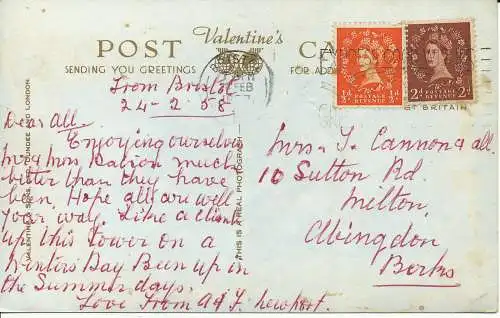 Valentine's
POST CA
SENDING YOU GREETINGS FOR ADD
From Bristol
24-2 58
Dear All.
Enjoying ourselves
Mr & Mrs much
better than they have
been, Hope all are well
your way. Like a climb
up this tower on a
Winters Day Been up in
the Summer days.
Love From A & J. Newport.
VALENTINE & SONS DUNDEE LONDON.
THIS IS A REAL PHOTOGRAPH
FEB
½d POSTAGE REVENUE ½d
2d POSTAGE REVENUE 2d
BRITAIN
Mrs J. Cannon & all.
10 Sutton Rd.
Milton,
Abingdon
Berks